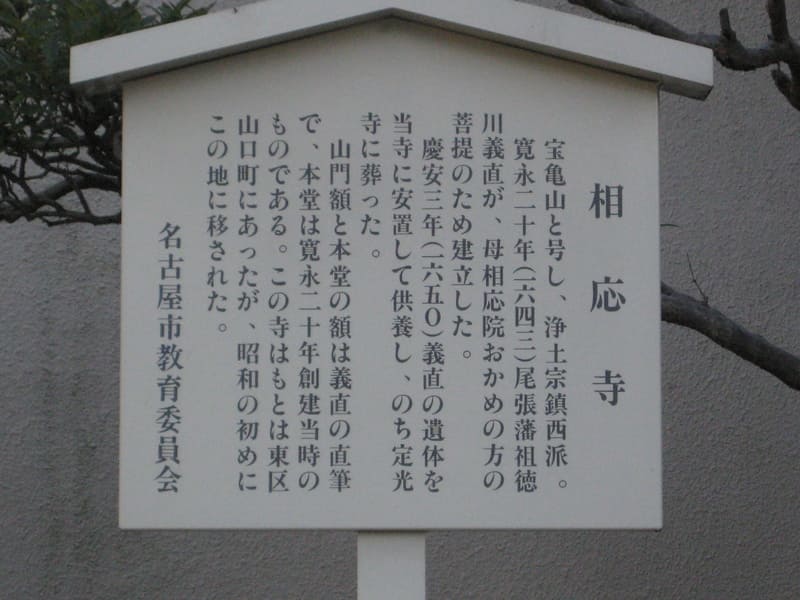 相応寺
宝亀山と号し、浄土宗鎮西派。
寛永二十年(一六四三)尾張藩祖徳
川義直が、母相応院おかめの方の
菩提のため建立した。
慶安三年(一六五〇)義直の遺体を
当寺に安置して供養し、のち定光
寺に葬った。
山門額と本堂の額は義直の直筆
で、本堂は寛永二十年創建当時の
ものである。この寺はもとは東区
山口町にあったが、昭和の初めに
この地に移された。
名古屋市教育委員会